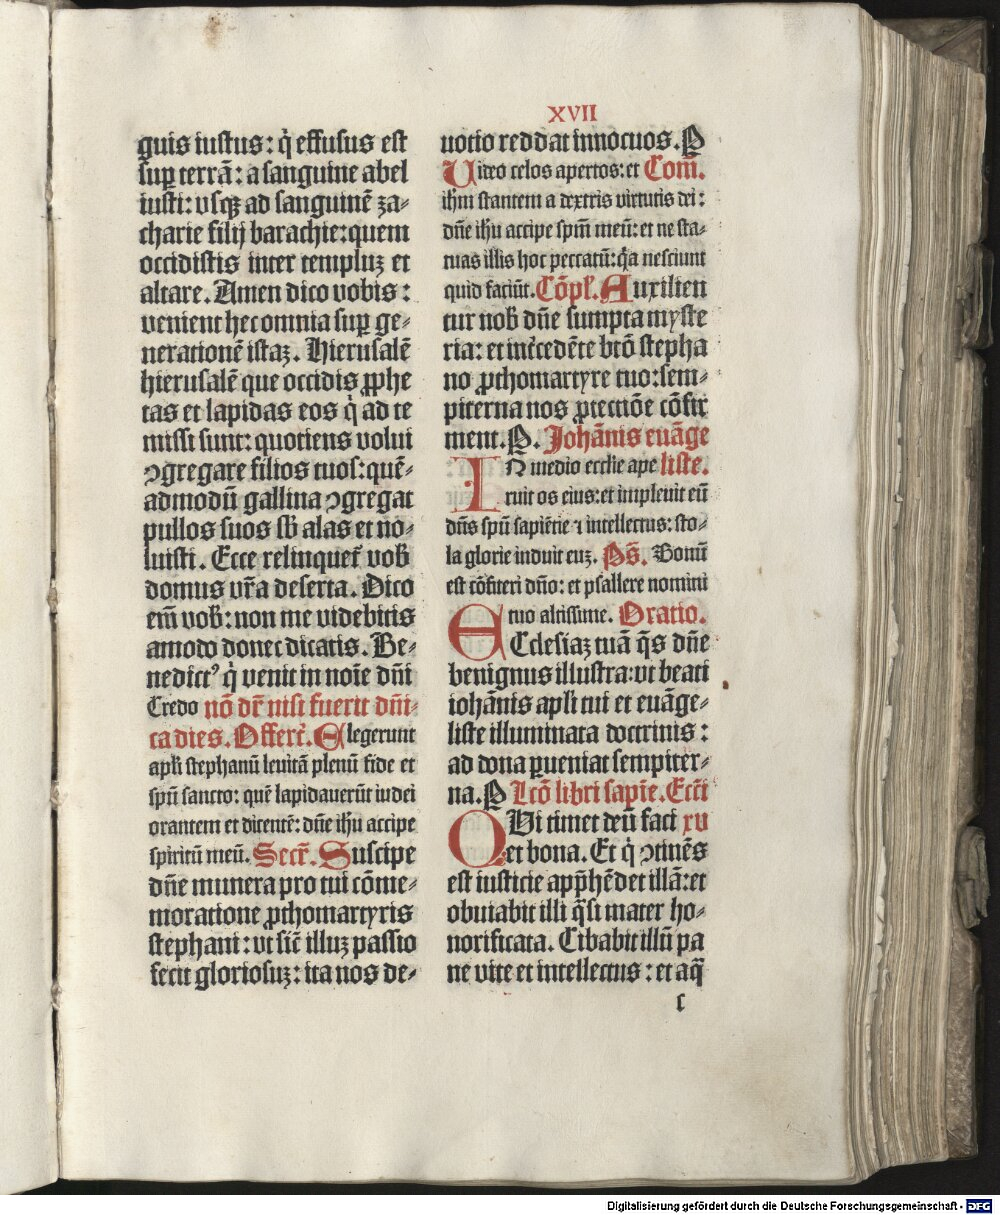 XVII
guis iustus: q̇ effusus est
sup̱ terrā: a sanguine abel
iusti: vsqꝫ ad sanguinē za⸗
charie filij barachie: quem
occidistis inter templuꝫ et
altare. Amen dico vobis:
venient hec omnia sup̱ ge⸗
nerationē istaꝫ. Hierusalē
hierusalē que occidis ꝓphe
tas et lapidas eos q̇ ad te
missi sunt: quotiens volui
ꝯgregare filios tuos: quē⸗
admodū gallina ꝯgregat
pullos suos sb̄ alas et no⸗
luisti. Ecce relinquet᷑ vob̄
domus vr̄a deserta. Dico
em̄ vob̄: non me videbitis
amodo donec dicatis. Be⸗
nedictꝰ q̇ venit in noīe dn̄i
Credo nō dr̄ nisi fuerit dn̄i⸗
ca dies. Offert᷑. Elegerunt
apl̄i stephanū leuitā plenū fide et
spū sancto: quē lapidauerūt iudei
orantem et dicentē: dn̄e ih̄u accipe
spiritū meū. Secr̄. Suscipe
dn̄e munera pro tui cōme⸗
moratione ꝓthomartyris
stephani: vt sic̄ illuꝫ passio
fecit gloriosuꝫ: ita nos de⸗
uotio reddat innocuos. P
Uideo celos apertos: et Com̄.
ih̄m stantem a dextris virtutis dei:
dn̄e ih̄u accipe spm̄ meū: et ne sta⸗
tuas illis hoc peccatū: q̄a nesciunt
quid faciūt. Cōpl̄. Auxilien
tur nob̄ dn̄e sumpta myste
ria: et int̄cedēte btō stepha
no ꝓthomartyre tuo: sem⸗
piterna nos ꝓtectiōe cōfir
ment. P. Johānis euāge
IN medio ecclie ape liste.
ruit os eius: et impleuit eū
dn̄s spū sapiētie ⁊ intellectus: sto⸗
la glorie induit euꝫ. Ps̄. Bonū
est cōfiteri dn̄o: et psallere nomini
tuo altissime. Oratio.
ECclesiaꝫ tuā q̄s dn̄e
benignus illustra: vt beati
iohānis apl̄i tui et euāge⸗
liste illuminata doctrinis:
ad dona ꝑueniat sempiter⸗
na. P Lcō libri sapiē. Ecci
QUi timet deū faci xv
et bona. Et q̇ ꝯtinēs
est iusticie app̄hēdet illā: et
obuiabit illi q̄si mater ho⸗
norificata. Cibabit illū pa
ne vite et intellectus: et aq̄
c
Digitalisierung gefördert durch die Deutsche Forschungsgemeinschaft - DFG